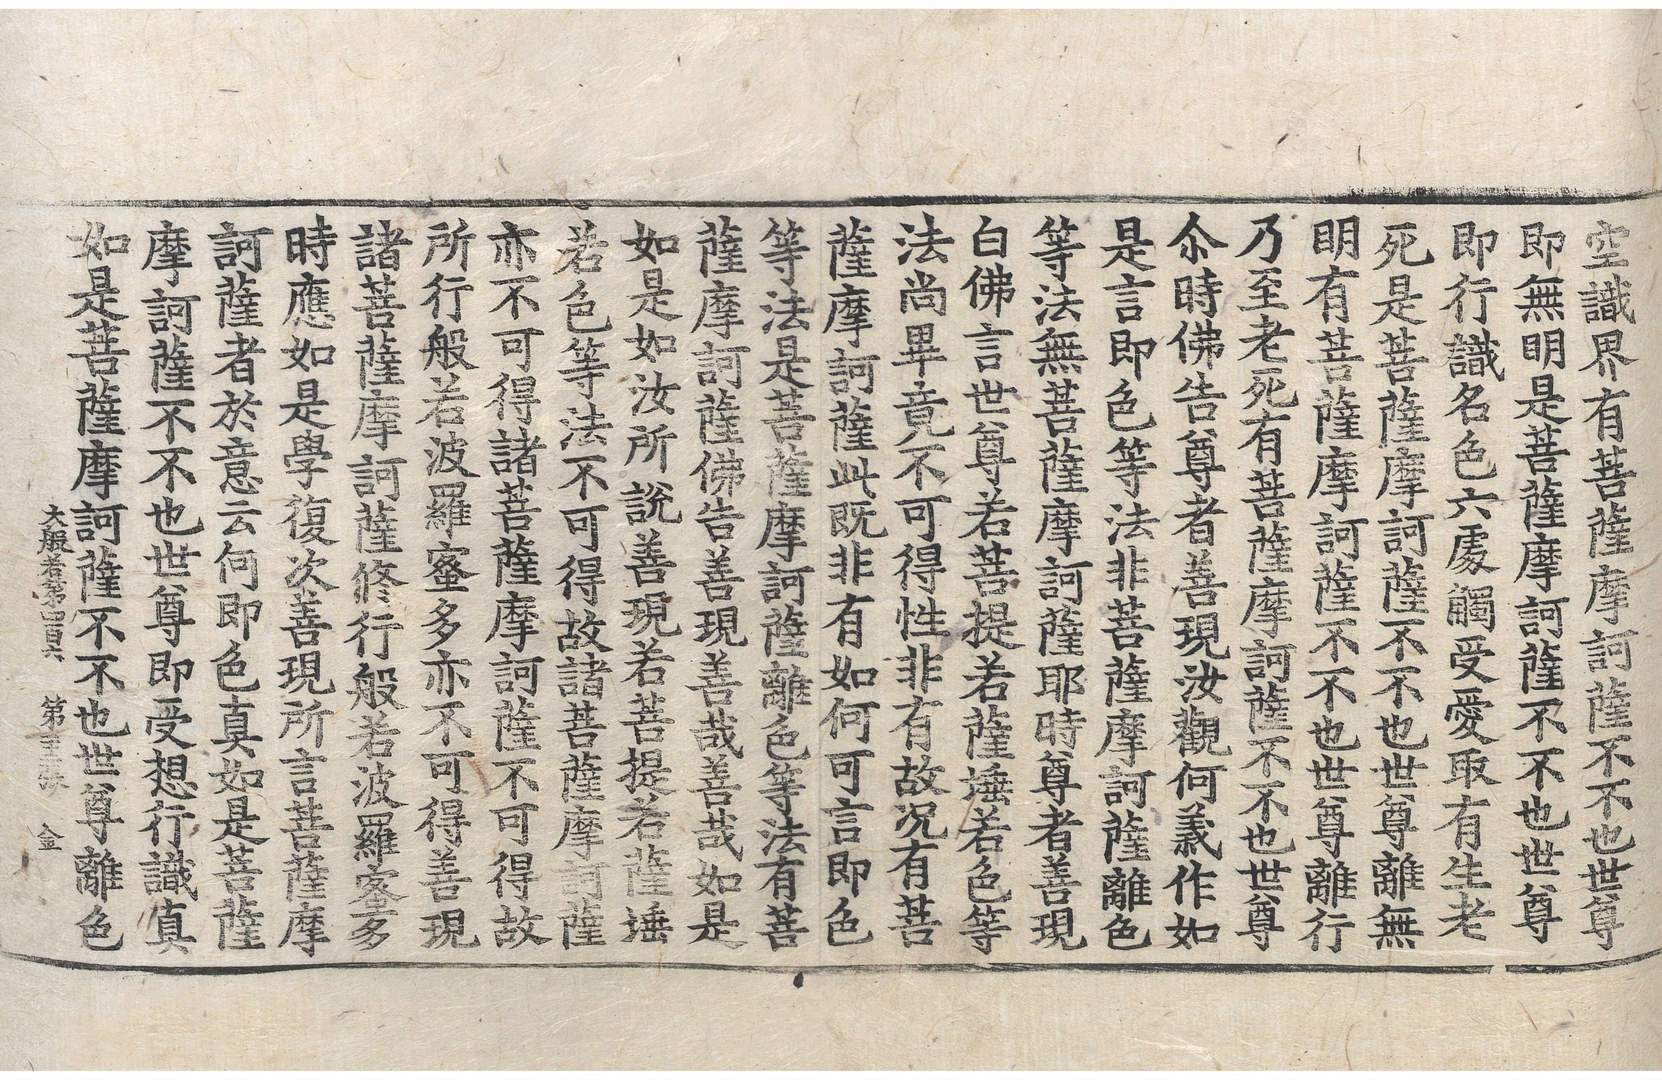 空識界有菩薩摩訶薩不不也世尊
即無明是菩薩摩訶薩不不也世尊
即行識名色六處觸受愛取有生老
死是菩薩摩訶薩不不也世尊離無
明有菩薩摩訶薩不不也世尊離行
乃至老死有菩薩摩訶薩不不也世尊
尒時佛告尊者善現汝觀何義作如
是言即色等法非菩薩摩訶薩離色
等法無菩薩摩訶薩耶時尊者善現
白佛言世尊若菩提若薩埵若色等
法尚畢竟不可得性非有故況有菩
薩摩訶薩此既非有如何可言即色
等法是菩薩摩訶薩離色等法有菩
薩摩訶薩佛告善現善哉善哉如是
如是如汝所說善現若菩提若薩埵
若色等法不可得故諸菩薩摩訶薩
亦不可得諸菩薩摩訶薩不可得故
所行般若波羅蜜多亦不可得善現
諸菩薩摩訶薩修行般若波羅蜜多
時應如是學復次善現所言菩薩摩
訶薩者於意云何即色真如是菩薩
摩訶薩不不也世尊即受想行識真
如是菩薩摩訶薩不不也世尊離色
大般若第四百六 第 張 金